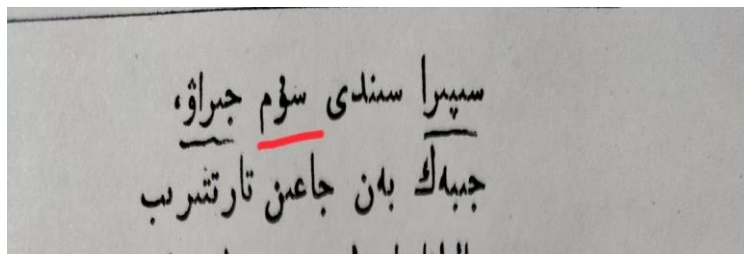 سىپىرا سىندى سۇم جىراۋ،
جىبەك بەن جاعىن تارتتىرىپ